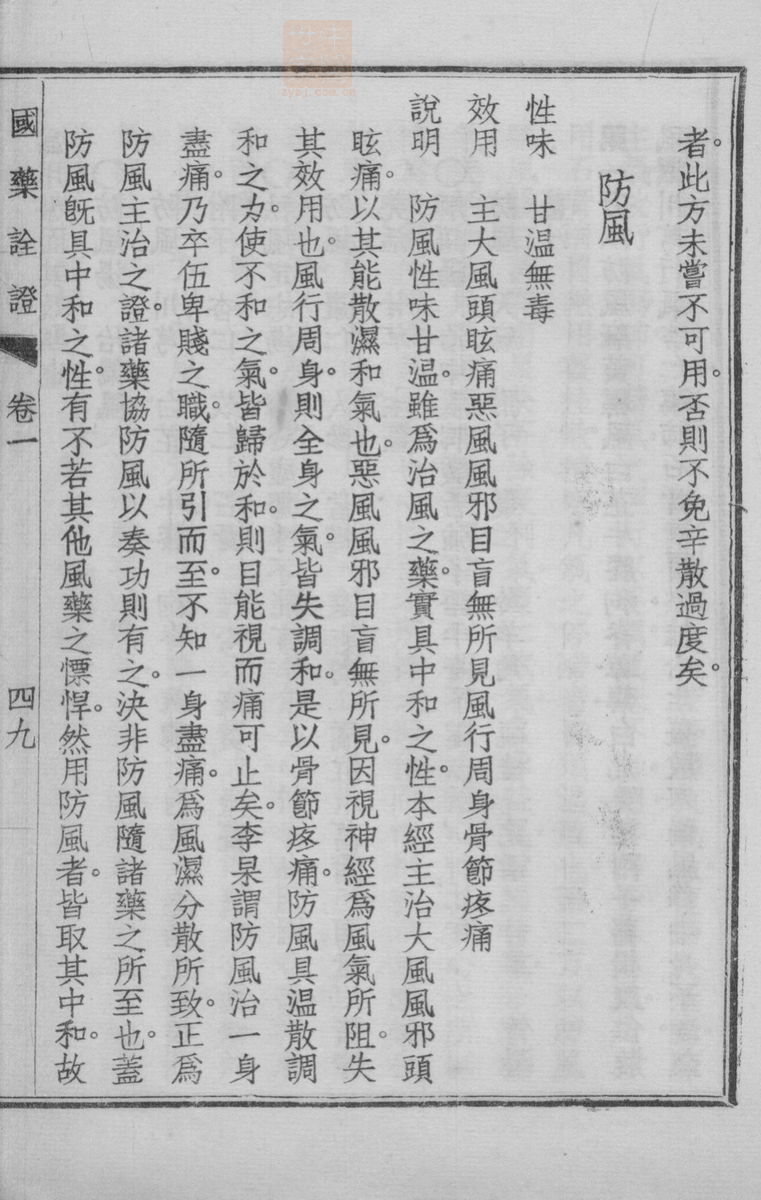 者。此方未嘗不可用。否則不免辛散過度矣。
防風
性味　甘温無毒
效用　主大風頭眩痛惡風風邪目盲無所見風行周身骨節疼痛
說明　防風性味甘温。雖爲治風之藥。實具中和之性。本經主治大風風邪頭
眩痛。以其能散濕和氣也。惡風風邪目盲無所見。因視神經爲風氣所阻。失
其效用也。風行周身。則全身之氣。皆失調和。是以骨節疼痛。防風具温散調
和之力。使不和之氣。皆歸於和。則目能視而痛可止矣。李杲謂防風治一身
盡痛。乃卒伍卑賤之職。隨所引而至。不知一身盡痛。爲風濕分散所致。正爲
防風主治之證。諸藥協防風以奏功則有之。決非防風隨諸藥之所至也。蓋
防風旣具中和之性。有不若其他風藥之慓悍。然用防風者。皆取其中和。故
國藥詮證　卷一　四九
zyybj.com.cn